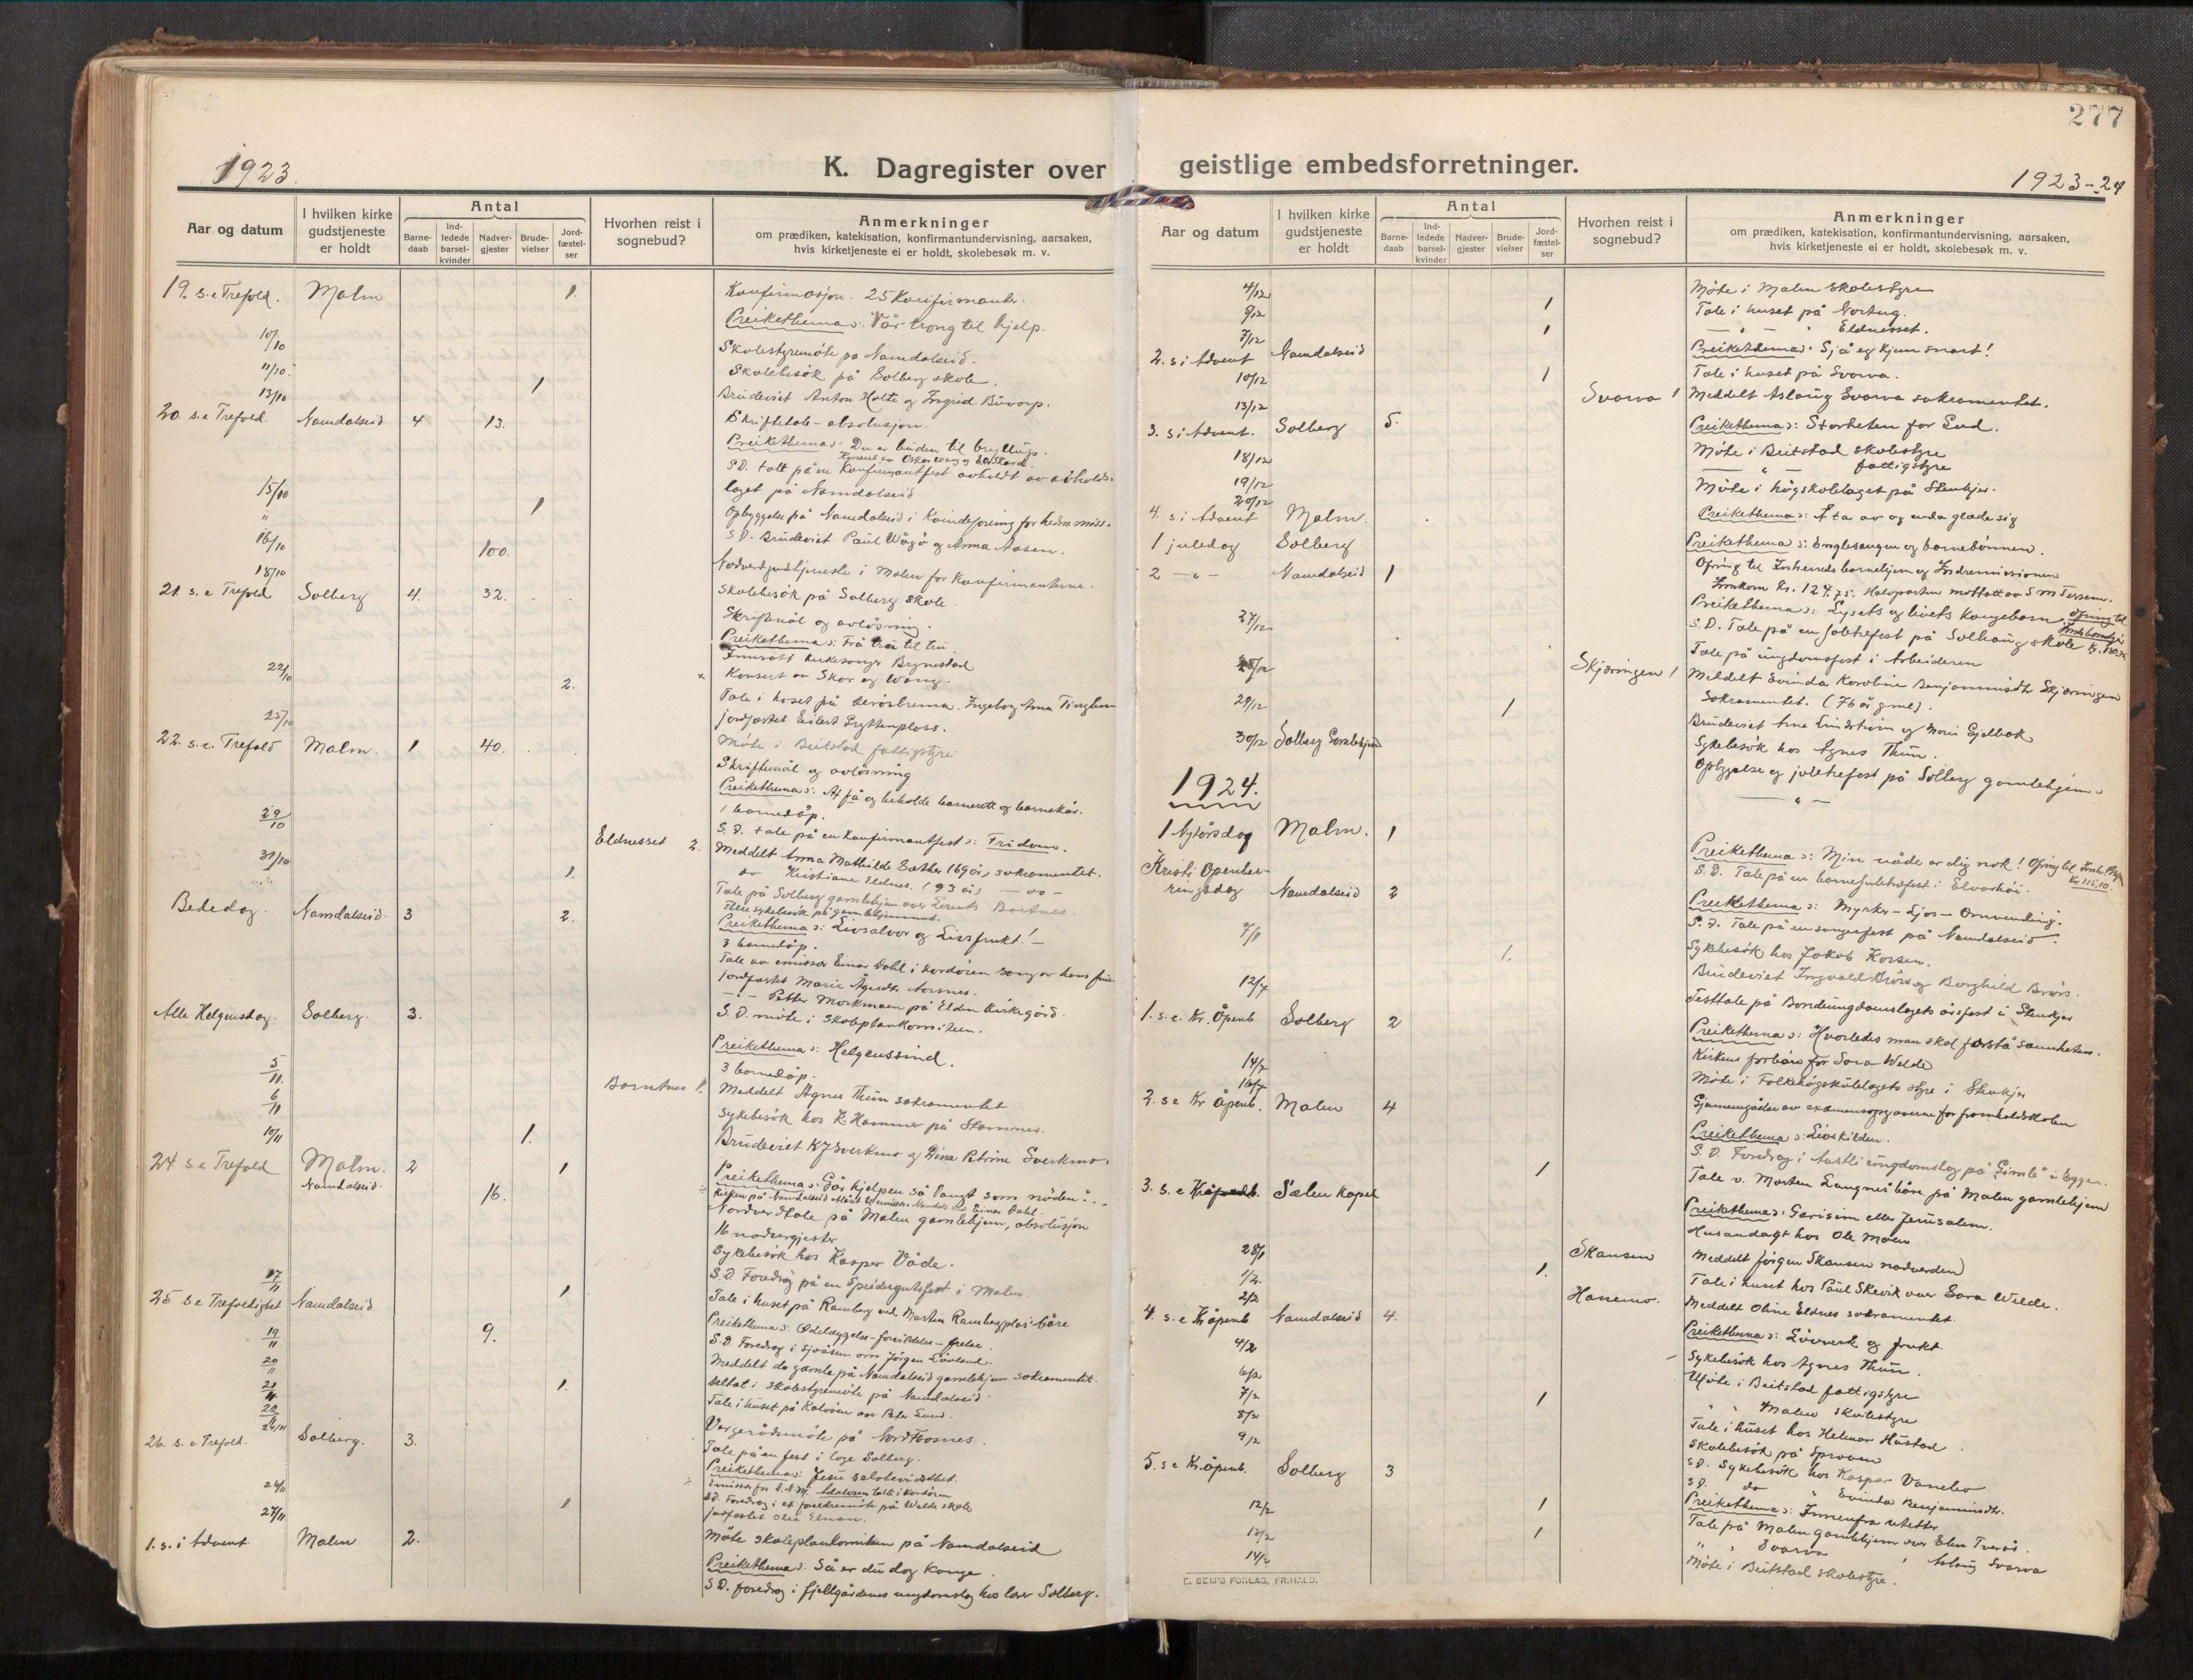 277
1923.
K. Dagregister over
Aar og datum
I hvilken kirke gudstjeneste er holdt
Antal
Barnedaab
Indledede barselkvinder
Nadvergjester
Brudevielser
Jordfæstelser
Hvorhen reist i sognebud?
Anmerkninger
om prædiken, katekisation, konfirmantundervisning, aarsaken, hvis kirketjeneste ei er holdt, skolebesøk m. v.
19. s. e Trefold. Malm 1. Konfirmasjon. 25 Konfirmanter.
Preikethema: Vår trong til hjelp.
10/10 Skolestyremöte på Namdalseid.
11/10. Skolebesök på Solberg skole.
13/10 1 Brudeviet Anton Holte og Ingrid Buvarp.
20 s. e Trefold. Namdalseid 4 13. Skriftetale - absolusjon.
Preikethema: Du er buden til bryllups.
S.D. talt på en Konfirmantfest avholdt av avholds-
laget på Namdalseid
15/10 Opbyggelse på Namdalseid i Kvindeforening for hedn. miss.
" 1 S.D. Brudeviet Paul Vågö og Anna Aasen.
16/10 100. Nadverdgudstjeneste i Malm for Konfirmanterne.
18/10 Skolebesök på Solberg skole.
21. s. e Trefold Solberg 4. 32. Skriftemål og avlösning.
Preikethema: Frå tru til tru
kirkesonger Brynestad
Konsert av Skar og Wang.
22/10 2. Tale i huset på Ingeborg Anna
jordfæstet Eilert
25/10 Möte i Beitstad fattigstyre
22. s. e. Trefold Malm. 1 40. Skriftemål og avlösning
Preikethema: At få og beholde barnerett og barnekår.
1 barnedåp.
S.D. tale på en Konfirmantfest: Fridom.
29/10 Eldnesset 2. Meddelt Anna Mathilde Sæther (69 år) sakramentet.
do Kristiane Eldnes. (93 år) — do —
31/10 1. Tale på Solberg gamlehjem over
Flere sykebesök på gamlehjemmet.
Bededag. Namdalseid. 3 2. Preikethema: Livsalvor og Livsfrukt! —
3 barnedåp.
Tale av emissær Einar Dahl i
jordfæstet Marie
— " — Petter Morkmoen på Elden Kirkegård.
S.D. möte i Skoleplankomiteen.
Alle Helgensdag. Solberg. 3. Preikethema: Helgenssind.
3 barnedåp.
5/11. Meddelt Agnes Thun sakramentet
6/11 Sykebesök hos K. Hammer på Stamnes.
10/11 1. Brudeviet K J Sverkmo og Dina Petrine Sverkmo.
24 s. e Trefold Malm. 2 1 Preikethema: Går hjelpen så langt som nöden?
Namdalseid. 16. Nadverdtale på Malm gamlehjem, absolusjon
16 nadvergjester
Sykebesök hos Kasper Våde.
S.D. Foredrag på en Speidergutsfest i Malm.
17/11 1 Tale i huset på Ramberg ved Martin båre
25 s. e Trefoldighet Namdalseid Preikethema: - frelse.
S.D. Foredrag i Sjöåsen om Jörgen Lövland.
19/11 9. Meddelt de gamle på Namdalseid gamlehjem sakramentet.
20/11 Deltat i Skolestyremöte på Namdalseid.
21/11 1. Tale i huset på Kalvöen over Peter Lund.
22/11 Vergerådsmöte på
24/11 Tale på en fest i loge Solberg.
26. s. e Trefold. Solberg. 3. Preikethema: Jesu selvbevidsthet.
24/11 S.D. Foredrag i et foreldremöte på Welde skole
27/11 1. jordfæstet Olea
Möte skoleplankomiteen på Namdalseid
1. s. i Advent Malm 2. Preikethema: Så er du dog Konge.
S.D. foredrag i fjellgårdenes ungdomslag hos lærer Solberg.
geistlige embedsforretninger.
1923-24
Aar og datum
I hvilken kirke gudstjeneste er holdt
Antal
Barnedaab
Indledede barselkvinder
Nadvergjester
Brudevielser
Jordfæstelser
Hvorhen reist i sognebud?
Anmerkninger
om prædiken, katekisation, konfirmantundervisning, aarsaken, hvis kirketjeneste ei er holdt, skolebesøk m. v.
4/12 Möte i Malm Skolestyre
9/12 1 Tale i huset på Nortug.
7/12 1 — " — Eldnesset.
2. s i Advent Namdalseid Preikethema: Sjå eg kjem snart!
10/12 1 Tale i huset på Svarva.
13/12 Svarva 1 Meddelt Aslaug Svarva sakramentet.
3. s i Advent. Solberg 5. Preikethema: Storheten for Gud.
18/12 Möte i Beitstad skolestyre
— " — fattigstyre
19/12 Möte i högskolelaget på Stenkjer.
20/12
4. s i Advent Malm. Preikethema: Å ta av og enda glæde sig
1 juledag Solberg Preikethema: Englesangen og barnebönnen.
2 — " — Namdalseid 1 Ofring til Inherreds barnehjem og Indremissionen
Innkom Kr. 124.75.
Preikethema: Lysets og livets kongebarn. Ofring til
S.D. Tale på en juletrefest på Solhaug skole
27/12 Tale på ungdomsfest i Arbeideren
28/12 Skjæringen 1 Meddelt Evinda Karoline Benjaminsdtr Skjæringen
Sakramentet. (76 år gml).
29/12 1 Brudeviet Arne Lindström og Marie Gjelbak
Sykebesök hos Agnes Thun.
30/12 Solberg Gamlehjem Opbyggelse og juletrefest på Solberg gamlehjem.
— " —
1924.
1 Nyttårsdag Malm. 1 Preikethema: Min nåde er dig nok!
S.D. Tale på en barnejuletrefest i Elvarhöi.
Kristi Openber-
ringsdag Namdalseid 2 Preikethema: Myrker - Ljos - Omvending.
S.D. Tale på en sangerfest på Namdalseid.
7/1 Sykebesök hos Jakob Korsen.
1. Brudeviet Ingvald Brörs og Borghild Brörs.
12/1 Festtale på Bondeungdomslagets årsfest i Stenkjer
1. s. e. Kr. Åpenb Solberg 2 Preikethema: Hvorledes man skal forstå sannheten.
Kirkens forbön for Sara Welde
14/1 Möte i Folkehögskolelagets styre i Stenkjer
16/1 Gjennemgåelse av examensopgaverne for framhaldskolen
2. s e Kr åpenb. Malm 4 Preikethema: Livskilden.
S.D. Foredrag i Austli ungdomslag på "Gimle" i Eggen.
1 Tale v. Morten Langnes' båre, på Malm gamlehjem
3. s. e Kråpenb. Sælen Kapel Preikethema: Garisim eller Jerusalem.
Husandagt hos Ole Moen
28/1 Skansen Meddelt Jörgen Skansen nadverden
1/2. 1. Tale i huset hos Paul Skevik over Sara Welde.
2/2 Hanemo. Meddelt Oline Eldnes sakramentet
4. s. e Kr åpenb Namdalseid 4. Preikethema: Lövverk og frukt.
4/2 Sykebesök hos Agnes Thun.
6/2 Möte i Beitstad fattigstyre
7/2 1 " " Malm skolestyre
8/2 Tale i huset hos Helmer Hustad
9/2 Skolebesök på Sprova
S.D. Sykebesök hos Kaspar Vanebo
S.D. do " Evinda Benjaminsdtr.
5. s e Kr. åpenb. Solberg 3 Preikethema: Innenfra utetter
12/2 1 Tale på Malm gamlehjem over Elen Tverås.
12/2 1 " " Svarva " Aslaug Svarva
14/2 Möte i Beitstad skolestyre.
E. SEM'S FORLAG, FR.HALD.